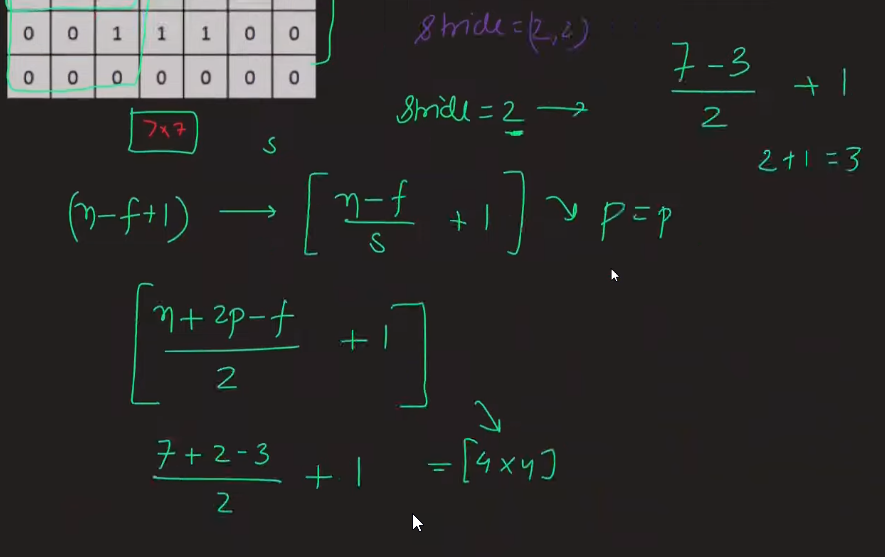 0 0 1 1 1 0 0
0 0 0 0 0 0 0
Stride = (2,2)
7 - 3 / 2 + 1
Stride = 2 →
7x7
s
2 + 1 = 3
(n-f+1) → [n-f / s + 1] ↘ p = p
[n + 2p - f / 2 + 1]
↘
7 + 2 - 3 / 2 + 1 = [4x4]